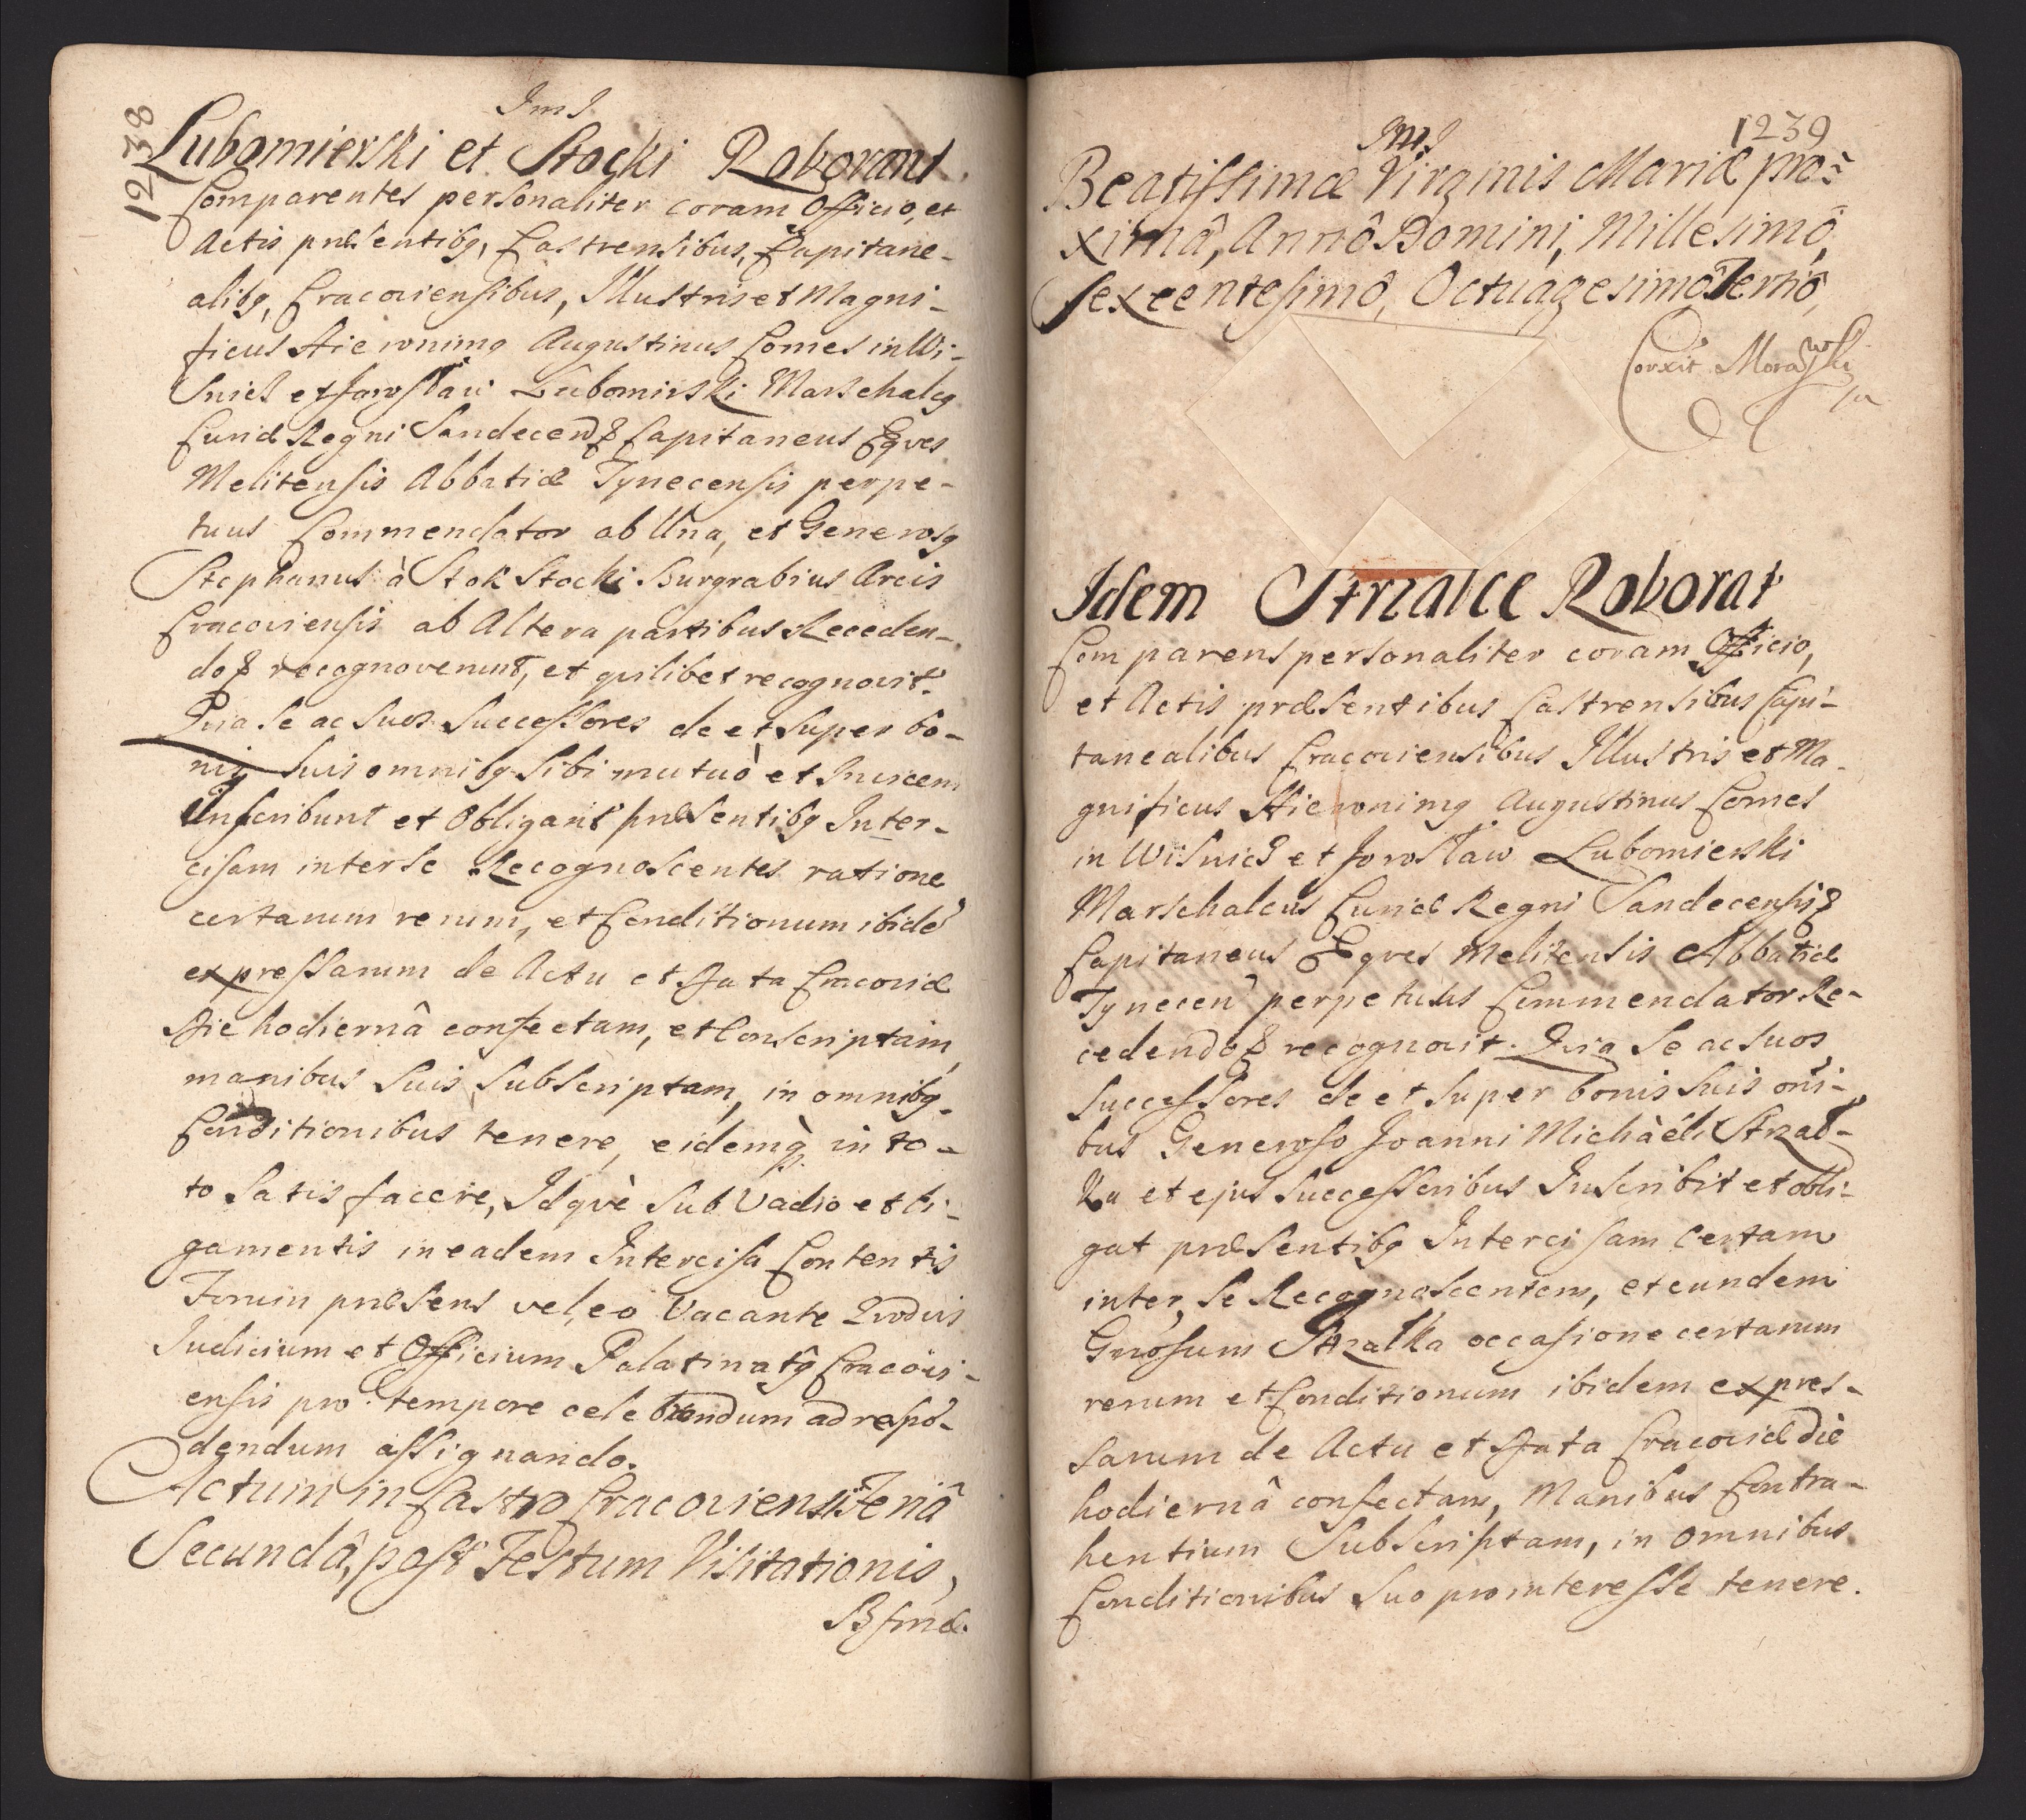 1238
Lubomierski et Stocki Roborant.
Comparentes personaliter coram Officio, et
Actis præsentibq, Castrensibus, Capitane-
alibq, Cracoviensibus, Illustris et Magni-
ficus Hieronimq Augustinus Comes in Wi-
snicz et Jarosław Lubomirski Marschalcq
Curiæ Regni Sandecenq Capitaneus Eqves
Melitensis Abbatiæ Tynecensis perpe-
tuus Commendator ab Una, et Generosq
Stephanus à Stok Stocki Burgrabius Arcis
Cracoviensis ab Altera partibus Receden-
doq recognoverunt, et quilibet recognovit.
Quia se ac suos Successores de et super bo-
nis suis omnibq sibi mutuò et Invicem
Inscribunt et Obligant præsentibq Inter-
cisam inter se Recognoscentes ratione
certarum rerum, et Conditionum ibidē
expressarum de Actu et Data Cracoviæ
Die hodiernâ confectam, et Conscriptam,
manibus suis subscriptam, in omnibq
Conditionibus tenere, eidemq in to-
to satisfacere, Idquè sub Vadio et li-
gamentis in eadem Intercisa Contentis
Forum præsens vel, eo Vacante Quodvis
Judicium et Officium Palatinatq Cracovi-
ensis pro tempore celebrandum ad respō-
dendum assignando.
Actum in Castro Cracoviensi Feriâ
Secundâ, post Festum Visitationis,
Bssmæ
1239
Beatissimæ Virginis Mariæ pro-
ximâ, Annô Domini, Millesimô,
Sexcentesimô, Octuagesimô Tertiô,
Corexit Morawski
Idem Strzalce Roborat
Comparens personaliter coram Officio,
et Actis præsentibus Castrensibus Capi-
tanealibus Cracoviensibus Illustris et Ma-
gnificus Hieronimq Augustinus Comes
in Wisnicz et Jarosław Lubomierski
Marschalcus Curiæ Regni Sandecensisq
Capitaneus Eqves Melitensis Abbatiæ
Tynecen perpetuus Commendator Re-
cedendoq recognovit. Quia se ac suos
Successores de et super bonis suis oni-
bus Generoso Joanni Michàéli Strzał-
ka et ejus Successoribus Inscribit et obli-
gat præsentibq Intercisam Certam
inter, se Recognoscentem, et eundem
Gnosum Strzałka occasione certarum
rerum et Conditionum ibidem expres-
sarum de Actu et Data Cracoviæ die
hodiernâ confectam, Manibus Contra-
hentium Subscriptam, in omnibus
Conditionibus suo pro interesse tenere.